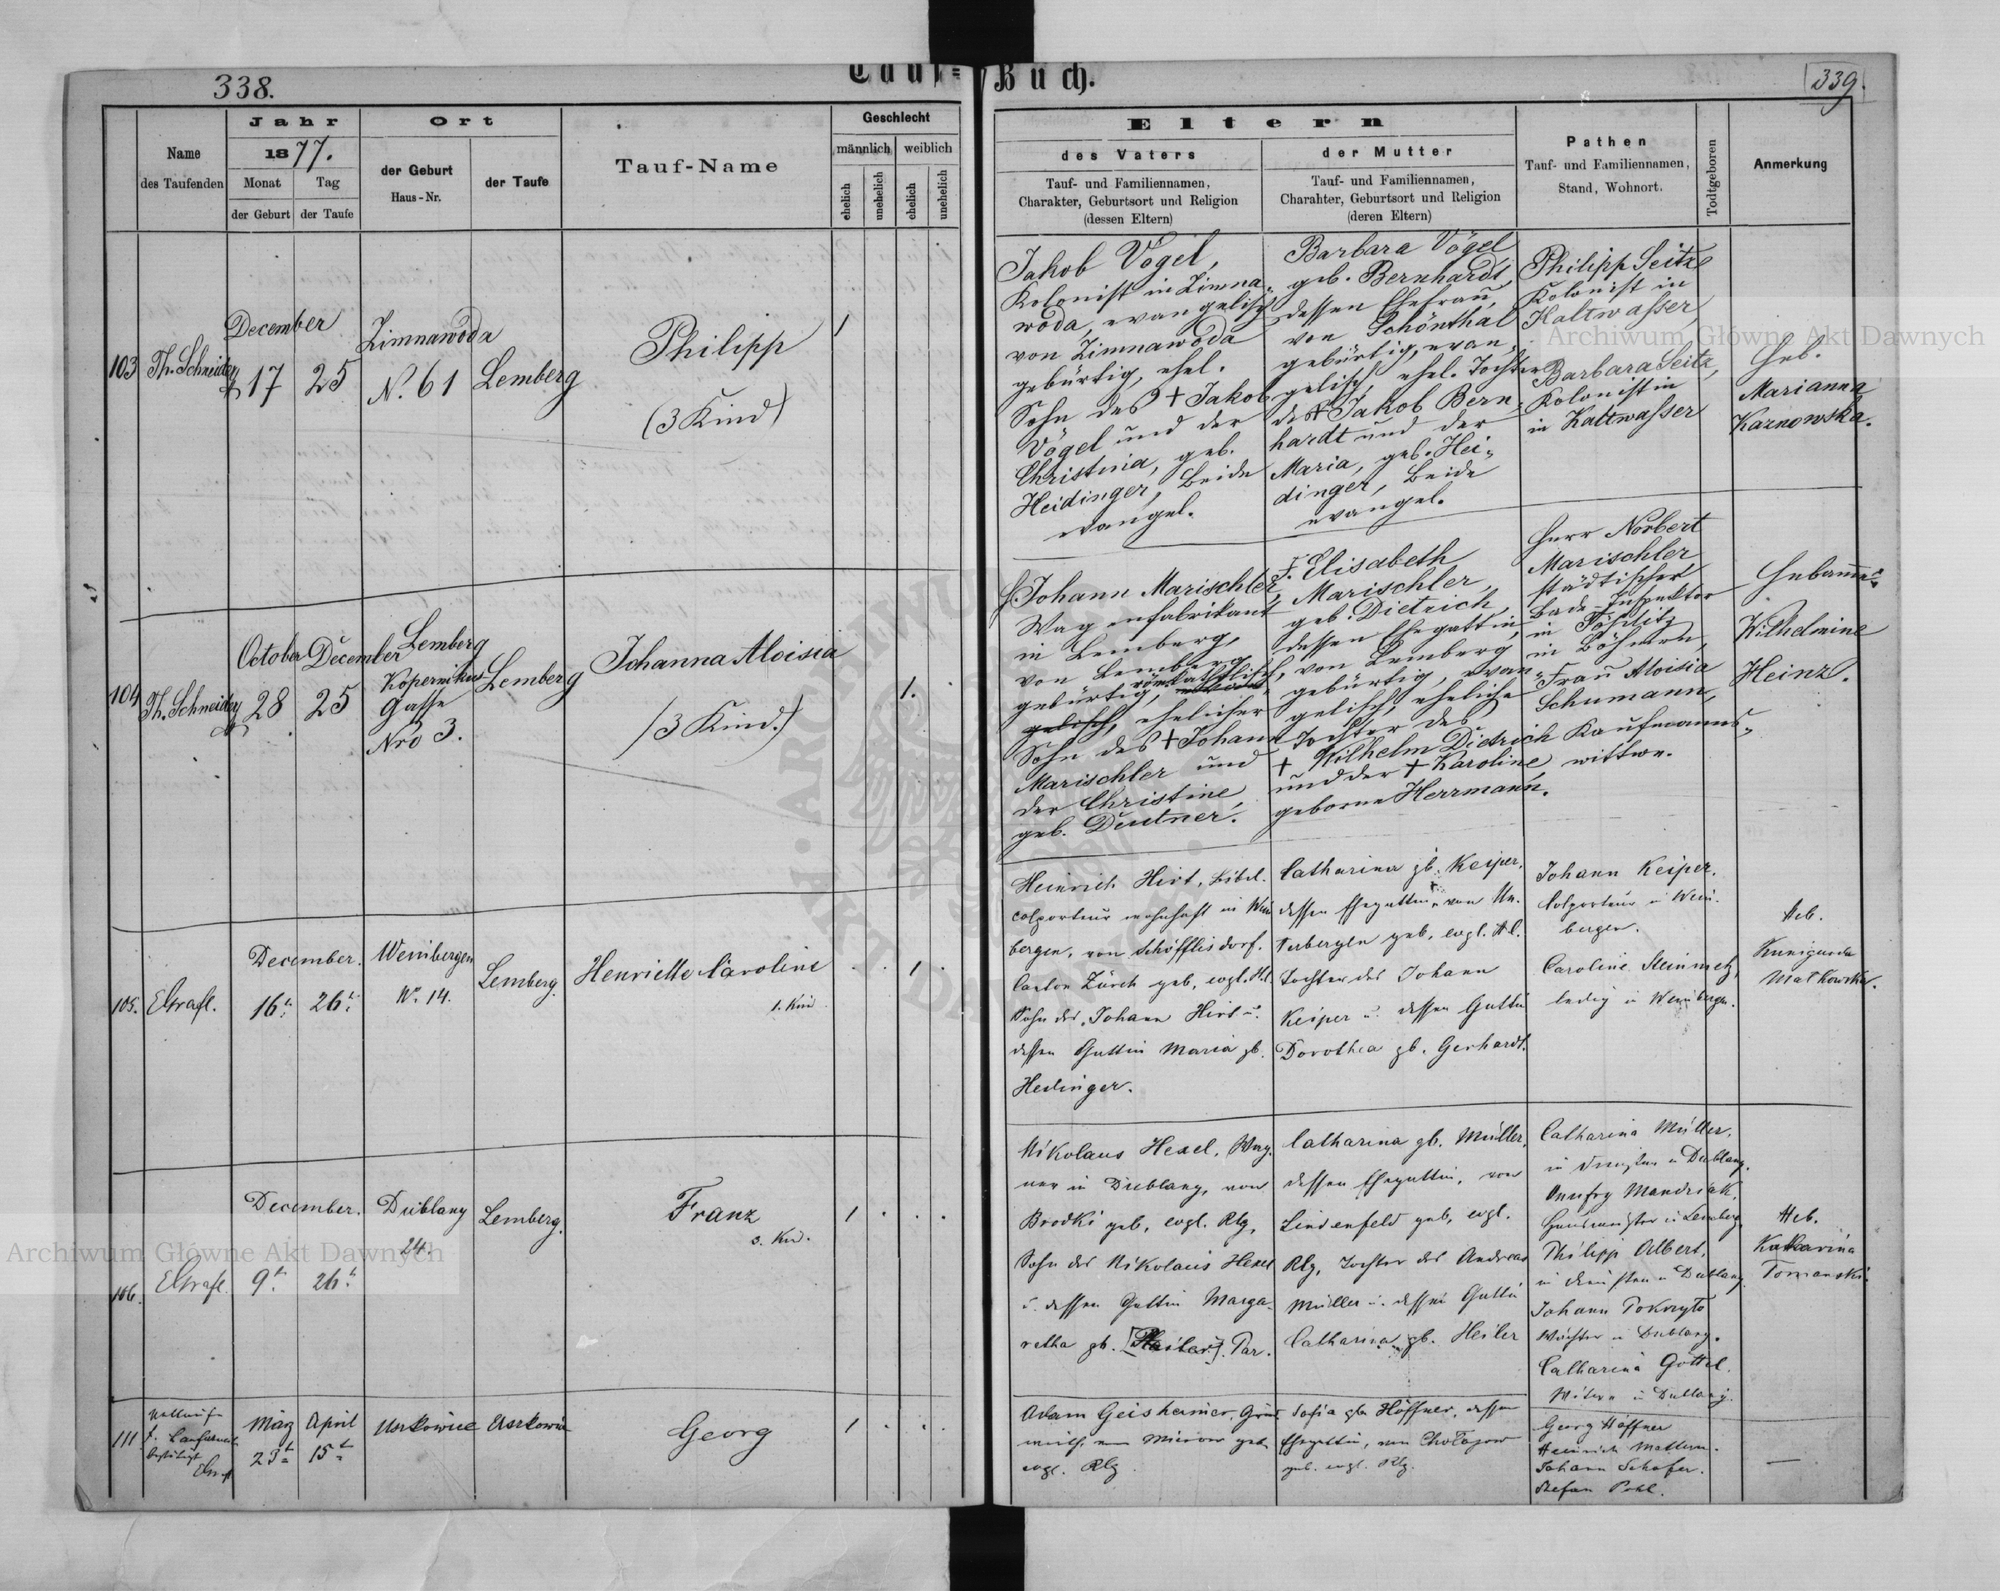 338.
Tauf=
Buch.
339.
Name
des Taufenden
Jahr
1877.
Monat
Tag
der Geburt
der Taufe
Ort
der Geburt
Haus-Nr.
der Taufe
Tauf-Name
Geschlecht
männlich
weiblich
ehelich
unehelich
ehelich
unehelich
Eltern
des Vaters
Tauf- und Familiennamen,
Charakter, Geburtsort und Religion
(dessen Eltern)
der Mutter
Tauf- und Familiennamen,
Charahter, Geburtsort und Religion
(deren Eltern)
Pathen
Tauf- und Familiennamen,
Stand, Wohnort.
Todtgeboren
Anmerkung
103
Th. Schneider
December
17
25
Zimnawoda
N. 61
Lemberg
Philipp
(3 Kind)
1
Jakob Vogel,
Kolonist in Zimna-
woda, evangelisch
von Zimnawoda
gebürtig, ehel.
Sohn des + Jakob
Vögel und der
Christina, geb.
Heidinger, beide
evangel.
Barbara Vögel
geb. Bernhardt,
dessen Ehefrau,
von Schönthal
gebürtig, evan-
gelisch, ehel. Tochter
des + Jakob Bern-
hardt und der
Maria, geb. Hei-
dinger, beide
evangel.
Philipp Seitz
Kolonist in
Kaltwasser,
Barbara Seitz,
Kolonist in
in Kaltwasser
Heb.
Marianna
Kaznowska.
104
Th. Schneider
October
28
December
25
Lemberg
Kopernikus
Gasse
Nro 3.
Lemberg
Johanna Aloisia
(3 Kind.)
1.
H. Johann Marischler,
Wagenfabrikant
in Lemberg,
von Lemberg
gebürtig, röm. katholisch,
gelisch, ehelicher
Sohn des + Johann
Marischler und
der Christine,
geb. Deutner.
F. Elisabeth
Marischler,
geb. Dietrich,
dessen Ehegattin,
von Lemberg
gebürtig, evan-
gelisch, eheliche
Tochter des
+ Wilhelm Dietrich
und der + Karoline,
geborne Herrmann.
Herr Norbert
Marischler
städtischer
Bade-Inspektor
in Töplitz
in Böhmen,
Frau Aloisia
Schumann,
Kaufmanns-
wittwe.
Hebamme
Wilhelmine
Heinz.
105.
EGrafl.
December.
16t.
26t.
Weinbergen
No. 14.
Lemberg.
Henriette Caroline
1. Kind
1
Heinrich Hirt, Bibel-
colporteur wohnhaft in Wein
bergen, von Schöfflisdorf.
Canton Zürch geb, evgl. H.C.
Sohn des Johann Hirt u.
dessen Gattin Maria gb.
Hedinger.
Catharina gb. Keiper,
dessen Ehegattin, von Un-
terbergen geb, evgl. H.C.
Tochter des Johann
Keiper u. dessen Gattin
Dorothea gb. Gerhardt.
Johann Keiper.
Colporteur in Wein-
bergen.
Caroline Steinmetz,
ledig in Weinbergen.
Heb.
Kunigunda
Malkowska.
106.
EGrafl.
December.
9t.
26t.
Dublany
24.
Lemberg.
Franz
3. Kind.
1
Nikolaus Hexel, Wag-
ner in Dublany, von
Brodki geb, evgl. Rlg,
Sohn des Nikolaus Hexel
u. dessen Gattin Marga-
retha gb.
Catharina gb. Müller,
dessen Ehegattin, von
Lindenfeld geb, evgl.
Rlg, Tochter des Andreas
Müller u. dessen Gattin
Catharina gb. Heiler
Catharina Müller,
in Diensten in Dublany.
Onufry Mandriak,
Hausmeister in Lemberg
Philipp Albert,
in Diensten in Dublany.
Johann Pokryto
Wächter in Dublany.
Catharina Gottel.
Witwe in Dublany.
Heb.
Katharina
Tomanski.
111
EGrafl
März
23t
April
15t
Uszkowice
Uszkowice
Georg
1
Adam Geisheimer, Grund
wirth, von Mierow geb
evgl. Rlg.
Sofia gb. Höffner, dessen
Ehegattin, von Cholojow
geb. evgl. Rlg.
Georg Höffner
Heinrich Mattern.
Johann Schäfer.
Stefan Pohl.
—
Archiwum Główne Akt Dawnych
Archiwum Główne Akt Dawnych